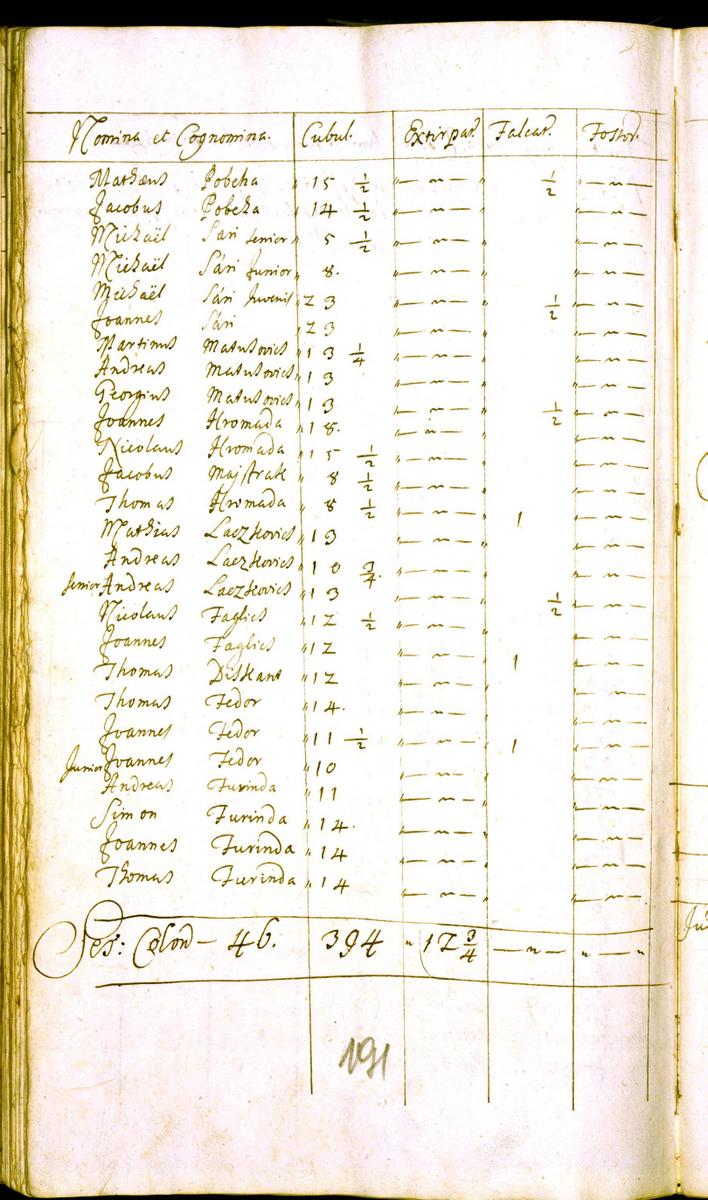 Nomina et Cognomina. Cubul. Extirpat. Falcat. Fossor.
Mathæus Pobeha " 15 1/2 "—"—" 1/2 "—"—
Jacobus Pobeha " 14 1/2 "—"—" "—"—
Michaël Sári senior " 5 1/2 "—"—" "—"—
Michaël Sári Junior " 8. "—"—" "—"—
Michaël Sári Juvenis " 23 "—"—" 1/2 "—"—
Joannes Sári " 23 "—"—" "—"—
Martinus Matusovics " 13 1/4 "—"—" "—"—
Andreas Matusovics " 13 "—"—" "—"—
Georgius Matusovics " 13 "—"—" 1/2 "—"—
Joannes Hromada " 18. "—"—" "—"—
Nicolaus Hromada " 15 1/2 "—"—" "—"—
Jacobus Majstrak " 8 1/2 "—"—" "—"—
Thomas Hromada " 8 1/2 "—"—" 1 "—"—
Mathias Laczkovics " 13 "—"—" "—"—
Andreas Laczkovics " 10 3/4. "—"—" "—"—
senior Andreas Laczkovics " 13 "—"—" 1/2 "—"—
Nicolaus Faglics " 12 1/2 "—"—" "—"—
Joannes Faglics " 12 "—"—" 1 "—"—
Thomas Diskant " 12 "—"—" "—"—
Thomas Fedor " 14. "—"—" "—"—
Joannes Fedor " 11 1/2 "—"—" 1 "—"—
Junior Joannes Fedor " 10 "—"—" "—"—
Andreas Furinda " 11 "—"—" "—"—
Simon Furinda " 14. "—"—" "—"—
Joannes Furinda " 14 "—"—" "—"—
Thomas Furinda " 14 "—"—" "—"—
Ses: Colon — 46. 394 " 12 3/4 —"—"— "—"
191